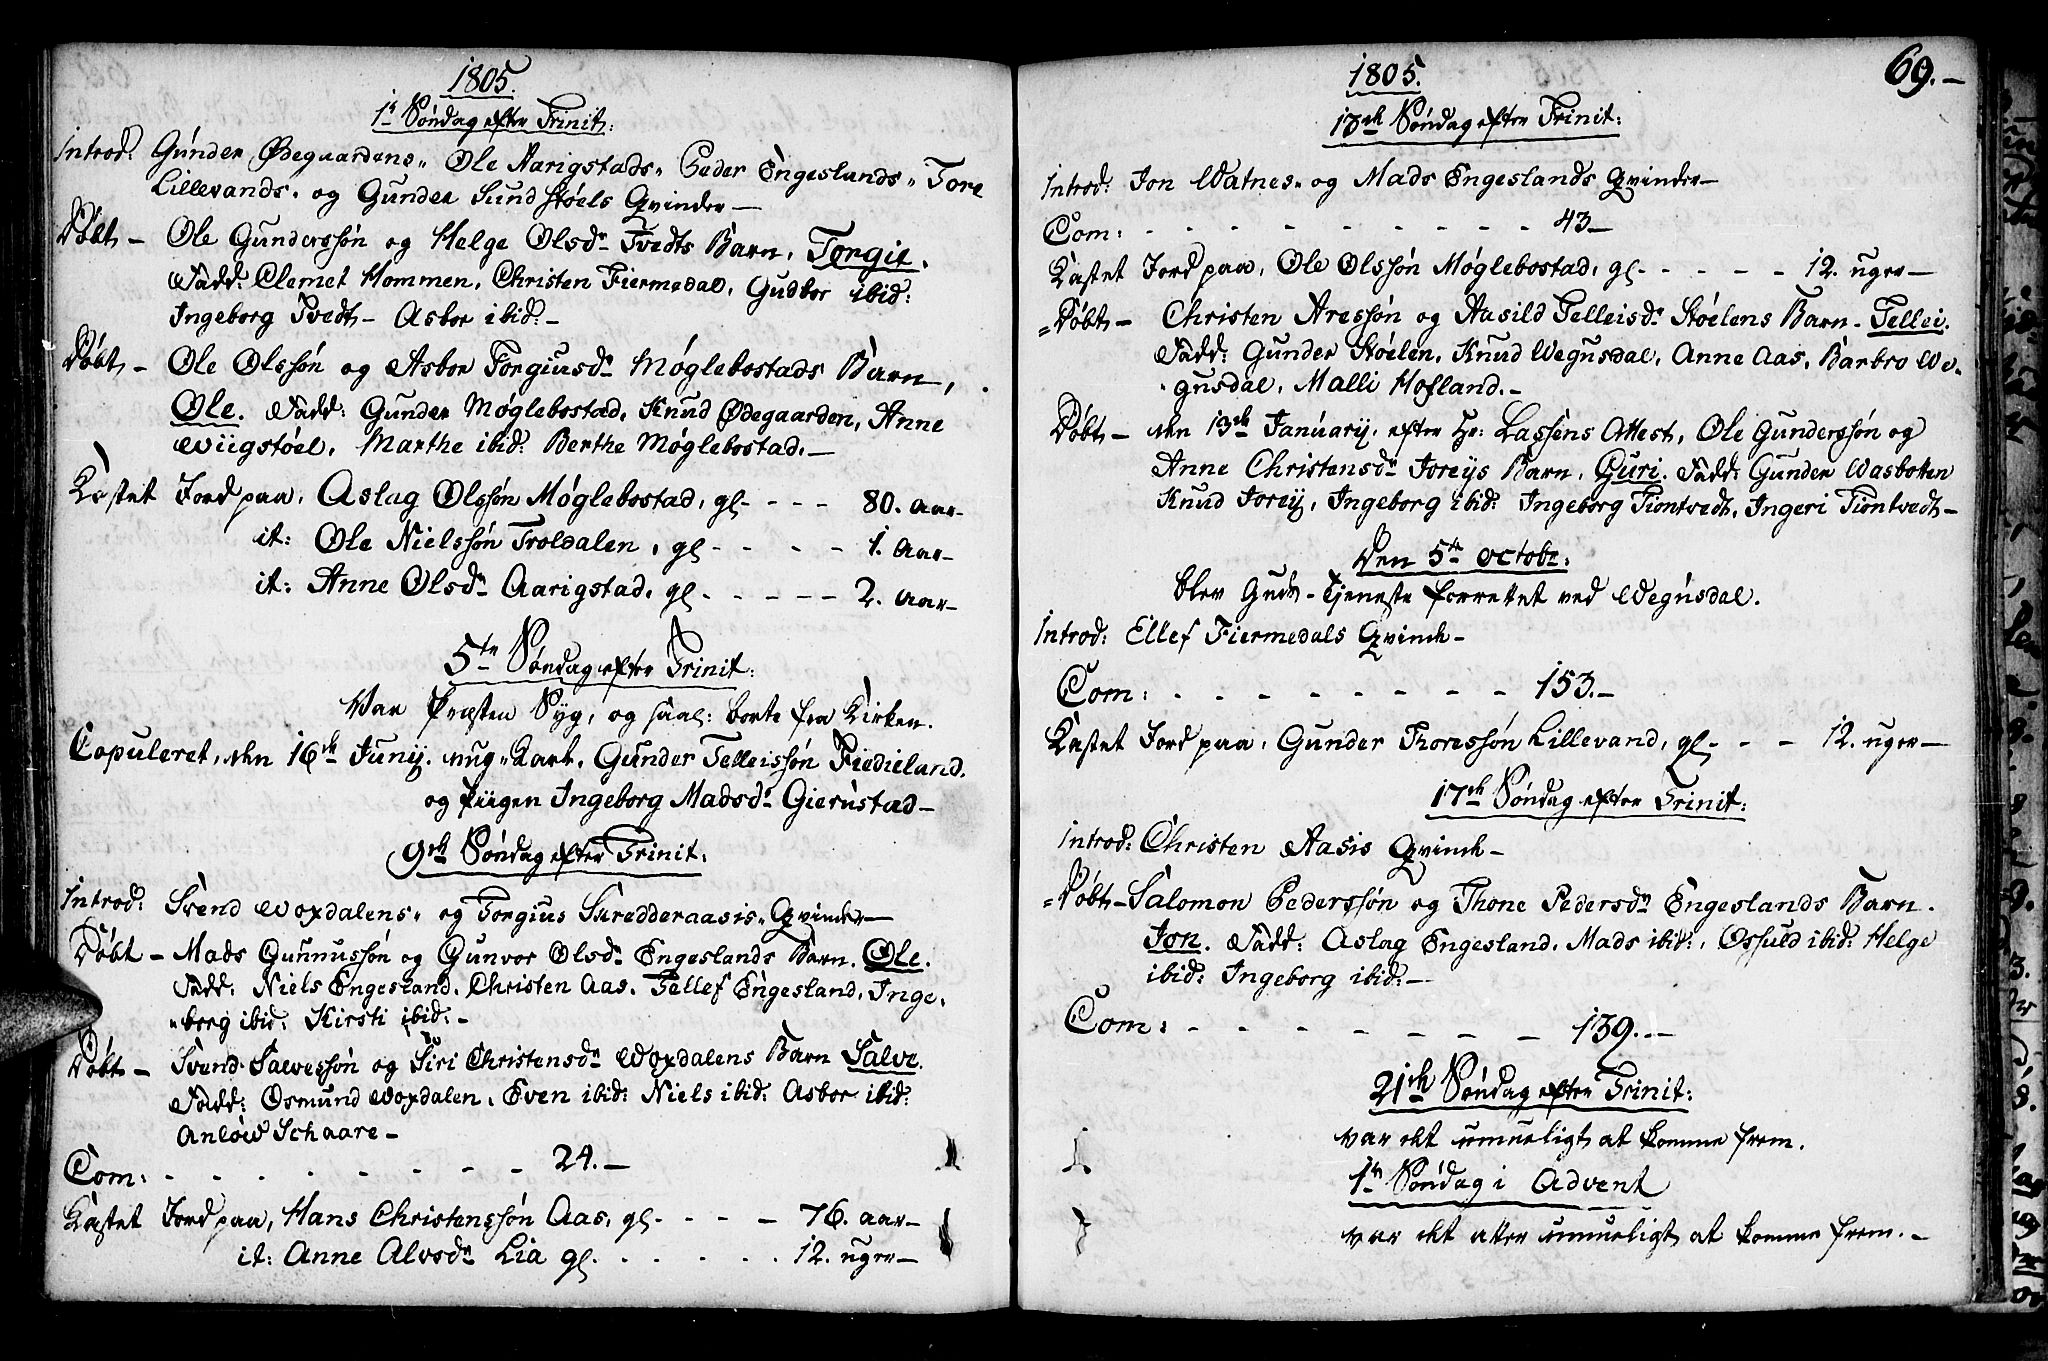 1805.
1ste Søndag efter Trinit:
Introd: Gunder Ødegaardens, Ole Aarigstads, Peder Engeslands, Tore
Lillevands, og Gunder Sundstøels Qvinder—
Døbt — Ole Gunderssøn og Helge Olsdr Tvedts Barn, Torgie.
Fadd: Clemet Hommen, Christen Fiermedal, Gudbor ibid:
Ingeborg Tvedt — Asbor ibid: —
Døbt — Ole Olssøn og Asbor Torgiusdr Møglebostads Barn,
Ole. Fadd: Gunder Møglebostad, Knud Ødegaarden, Anne
Wiigstøel, Marthe ibid: Berthe Møglebostad. —
Kastet Jord paa, Aslag Olssøn Møglebostad, gl. - - - 80. aar—
it: Ole Nielssøn Troldalen, gl - - - - 1. Aar—
it: Anne Olsdr Aarigstad, gl - - - - - 2. Aar—
5te Søndag efter Trinit:
Var Præsten Syg, og saal: borte fra Kirken.
Copuleret, den 16de Junij. ung-Karl, Gunder Telleissøn Fiedieland.
og Piigen Ingeborg Madsdr Gierustad—
9de Søndag efter Trinit.
Introd: Svend Woxdalens, og Torgius Skredderaasis Qvinder—
Døbt — Mads Gunnussøn og Gunvor Olsdr Engeslands Barn. Ole.
Fadd: Niels Engesland, Christen Aas, Tellef Engesland, Inge-
borg ibid: Kirsti ibid: —
Døbt — Svend Salvessøn og Siri Christensdr Woxdalens Barn Salve.
Fadd: Osmund Woxdalen, Even ibid: Niels ibid: Asbor ibid:
Anlow Schaare —
Com: - - - - - - - - 24. —
Kastet Jord paa, Hans Christenssøn Aas, gl. - - - - 76. aar—
it: Anne Alvsdr Lia gl. - - - - - 12. uger—
69. —
1805.
13de Søndag efter Trinit:
Introd: Jon Watnes, og Mads Engeslands Qvinder—
Com: - - - - - - - - - - 43—
Kastet Jord paa, Ole Olssøn Møglebostad, gl - - - - - 12. uger—
Døbt — Christen Aressøn og Aasild Telleisdr Støelens Barn — Tellei.
Fadd: Gunder Støelen, Knud Wegusdal, Anne Aas, Barbro We-
gusdal, Malli Hofland. —
Døbt — den 13de Januarij, efter Hr: Lassens Attest, Ole Gunderssøn og
Anne Christensdr Joreÿs Barn, Guri. Fadd: Gunder Wasbotten
Knud Joreÿ, Ingeborg ibid: Ingeborg Tiontvedt, Ingeri Tiontvedt —
Den 5te Octobr:
blev Guds-Tjeneste forrettet ved Wegusdal.
Introd: Ellef Fiermedals Qvinde —
Com: - - - - - - - - - 153. —
Kastet Jord paa, Gunder Thoressøn Lillevand, gl. - - - 12. uger—
17de Søndag efter Trinit:
Introd: Christen Aasis Qvinde —
Døbt — Salomon Pederssøn og Thone Pedersdr Engeslands Barn.
Jon. Fadd: Aslag Engesland, Mads ibid:, Osfuld ibid: Helge
ibid: Ingeborg ibid: —
Com: - - - - - - - - - 139. —
21de Søndag efter Trinit:
var det umueligt at komme frem.
1te Søndag i Advent
var det atter umueligt at komme frem. —